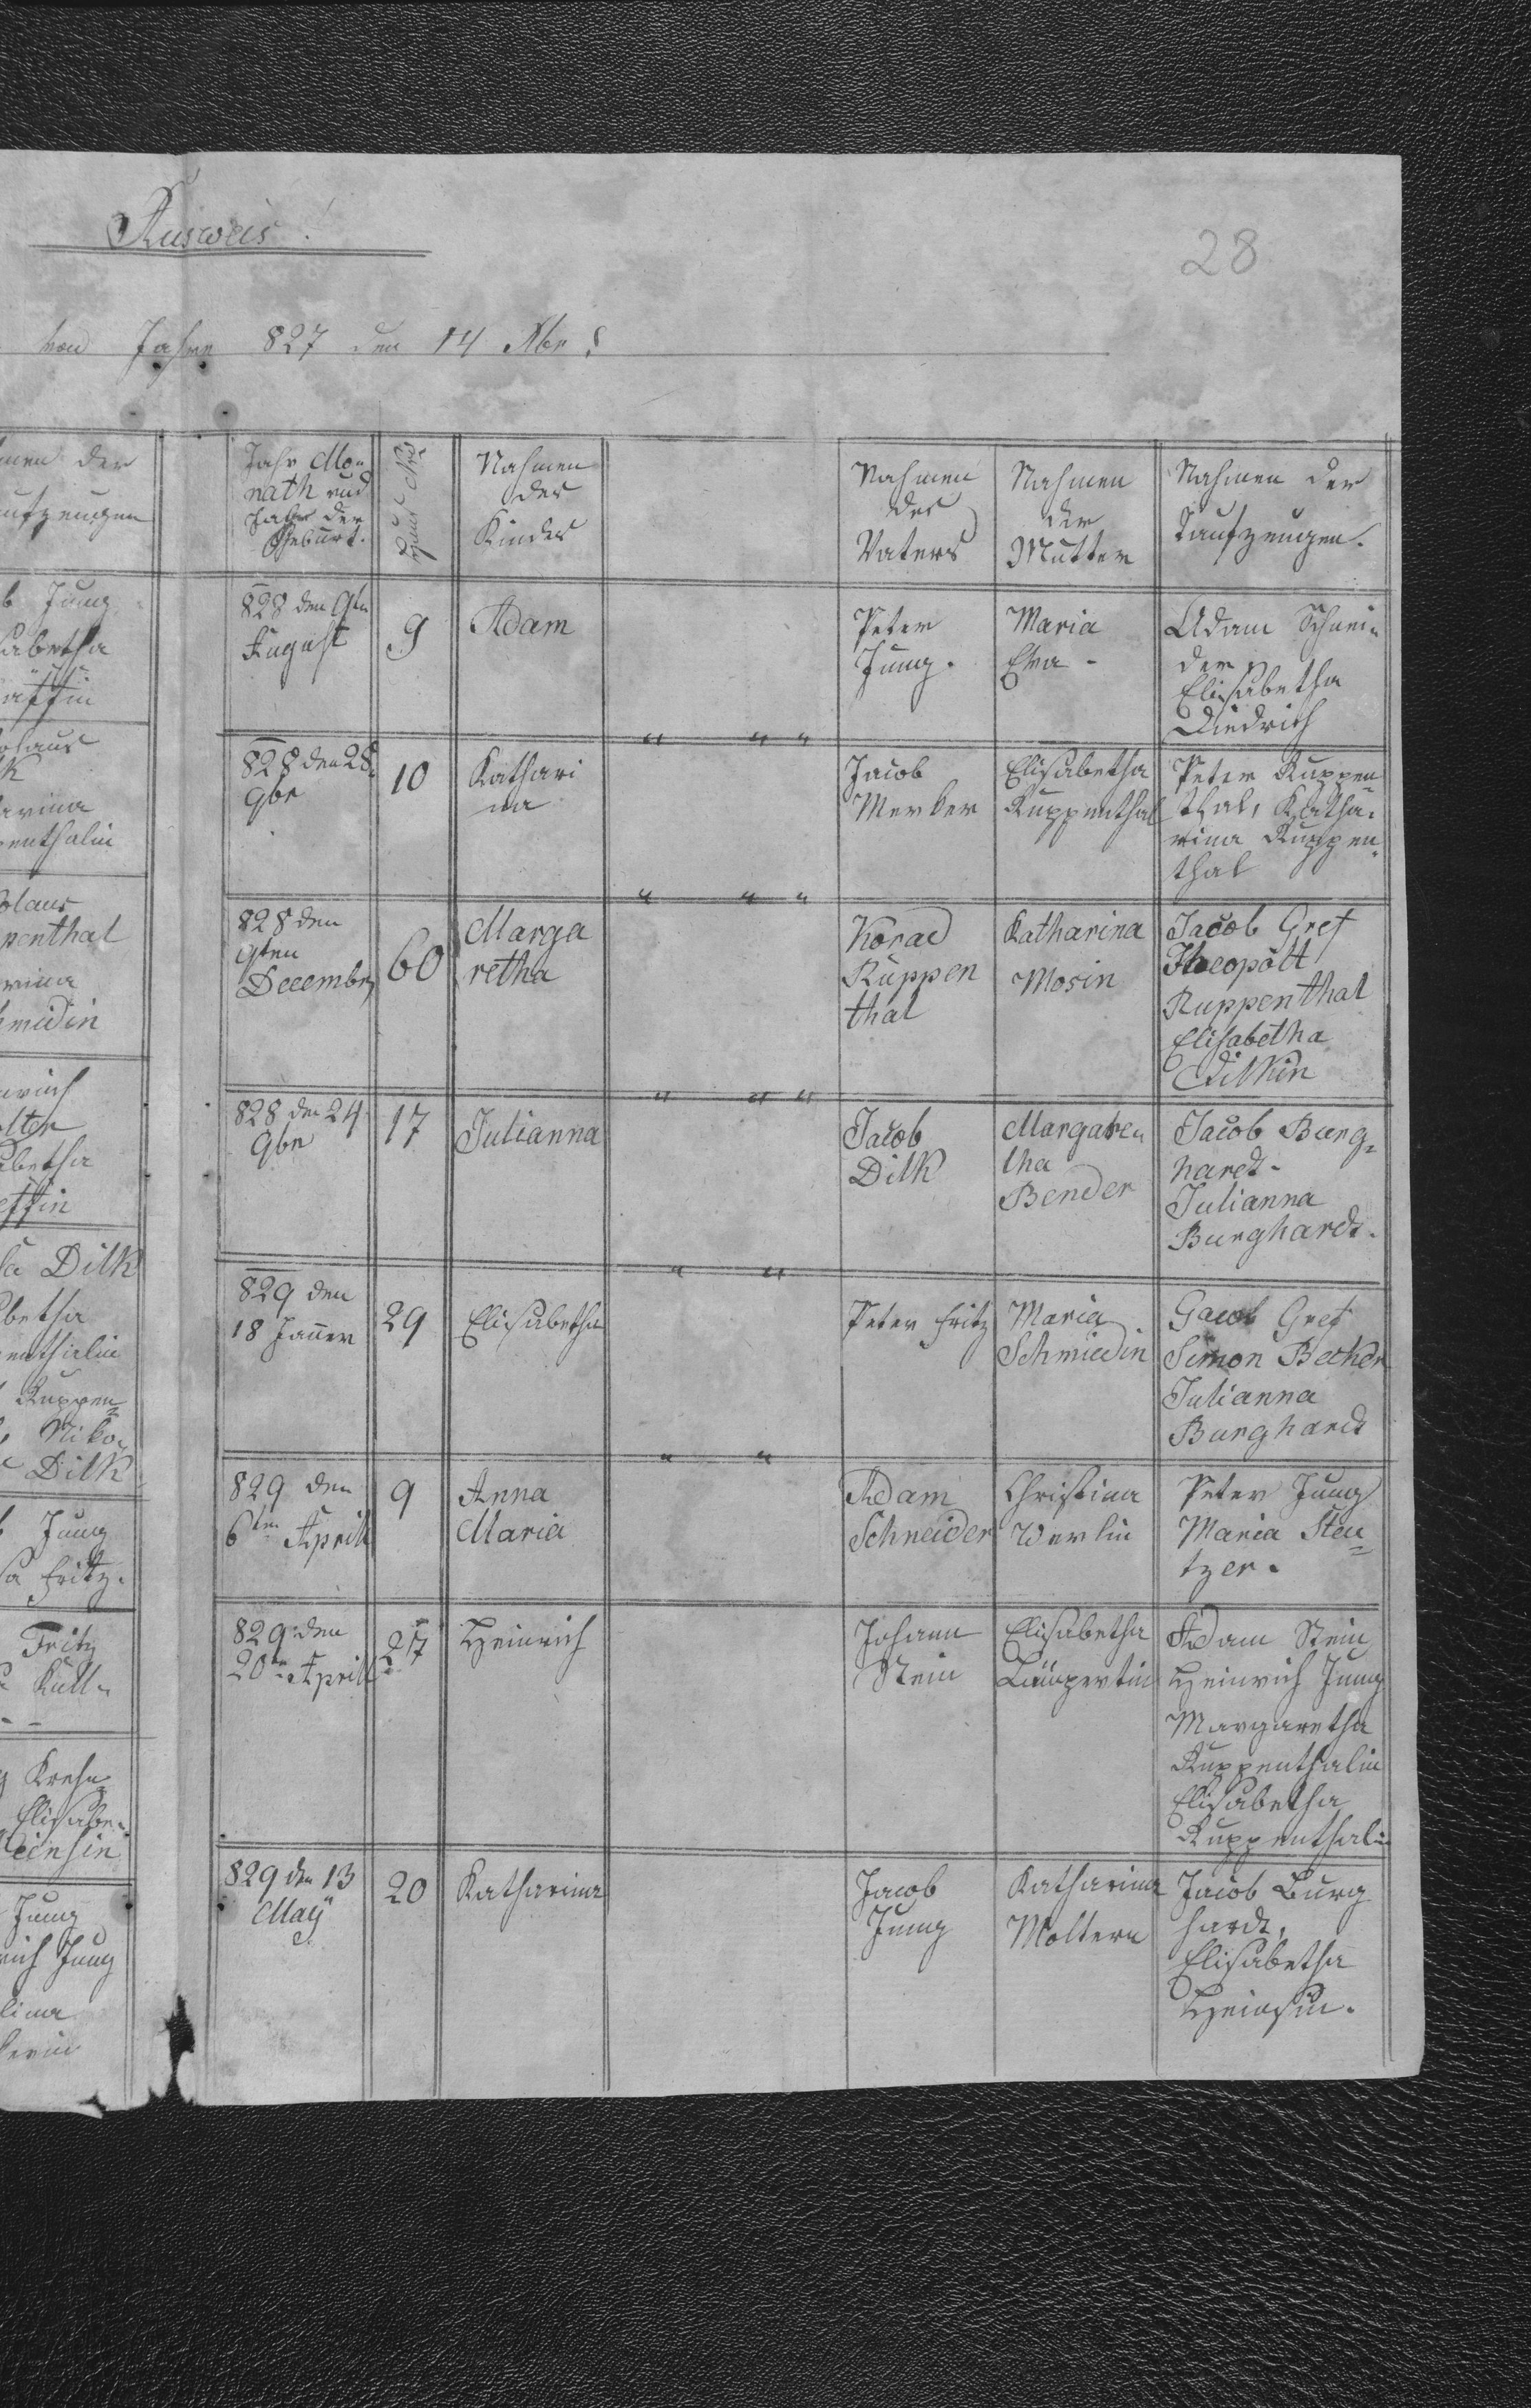 Ausweis!
28
von Jahre 827 den 14 Abr:
men der
aufzeugen
b Jung
sabetha
k
arina
penthalin
olaus
penthal
rina
hmidin
nrich
olter
abetha
effin
sa Dilk
abetha
penthalin
Ruppen=
Niko-
Dilk
Jung
sa Fritz.
Fritz
Kull-
Elisabe-
Jung
rich Jung
Jahr Mo-
nath und
Geburt.
Haus Nro
Nahmen
des
Kindes
Nahmen
des
Vaters
Nahmen
der
Mutter
Nahmen der
Taufzeugen.
828 den 9ten
August
9
Adam
Peter
Jung.
Maria
Eva -
Adam Schnei-
der
Elisabetha
Diedrich
" " "
828 den 28.
9br
10
Kathari
na
Jacob
Merker
Elisabetha
Ruppenthal
Peter Ruppen
thal, Katha-
rina Ruppen-
thal
" " "
828 den
9ten
Decembr
60
Marga
retha
Korad
Ruppen
thal
Katharina
Mosin
Jacob Gref
Theopolt
Ruppenthal
Elisabetha
Dilkin
" " "
828 den 24.
9br
17
Julianna
Jacob
Dilk
Margaren
tha
Bender
Jacob Burg=
hardt-
Julianna
Burghardt.
" "
829 den
18 Janner
29
Elisabetha
Peter Fritz
Maria
Schmiedin
Gacob Gref
Simon Becker
Julianna
Burghardt
" "
829 den
6ten Aprill
9
Anna
Maria
Adam
Schneider
Christina
Werlin
Peter Jung
Maria Steu=
tzer.
829 den
20ten Aprill
27
Heinrich
Johann
Stein
Elisabetha
Laupertin
Adam Stein
Heinrich Jung
Margaretha
Ruppenthalin
Elisabetha
Ruppenthalin
829 den 13
May
20
Katharina
Jacob
Jung
Katharina
Moltern
Jacob Burg
hardt,
Elisabetha
Heinsin.